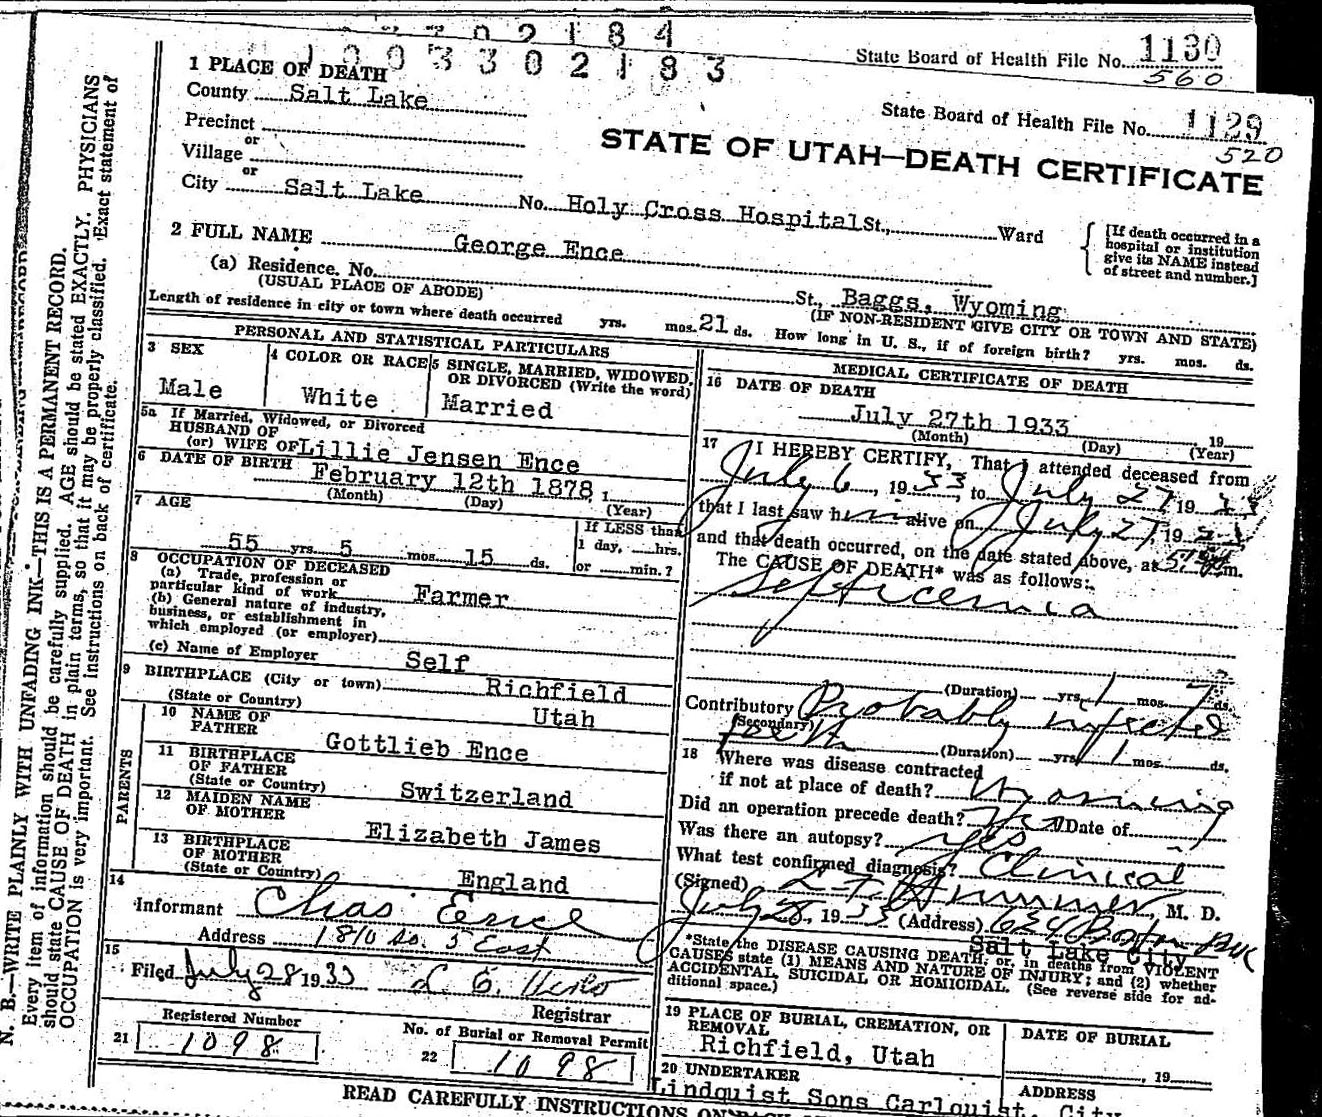 State Board of Health File No. 1130
560
1933302183
State Board of Health File No. 1129
520
STATE OF UTAH—DEATH CERTIFICATE
1 PLACE OF DEATH
County Salt Lake
Precinct
or
Village
or
City Salt Lake No. Holy Cross Hospital St., Ward
[If death occurred in a hospital or institution give its NAME instead of street and number.]
2 FULL NAME George Ence
(a) Residence. No. St., Baggs, Wyoming
(USUAL PLACE OF ABODE) (IF NON-RESIDENT GIVE CITY OR TOWN AND STATE)
Length of residence in city or town where death occurred yrs. mos. 21 ds. How long in U. S., if of foreign birth? yrs. mos. ds.
PERSONAL AND STATISTICAL PARTICULARS
3 SEX
Male
4 COLOR OR RACE
White
5 SINGLE, MARRIED, WIDOWED, OR DIVORCED (Write the word)
Married
5a If Married, Widowed, or Divorced
HUSBAND OF
(or) WIFE OF Lillie Jensen Ence
6 DATE OF BIRTH February 12th 1878, 1
(Month) (Day) (Year)
7 AGE
55 yrs. 5 mos. 15 ds.
If LESS than
1 day, hrs.
or min.?
8 OCCUPATION OF DECEASED
(a) Trade, profession or
particular kind of work Farmer
(b) General nature of industry,
business, or establishment in
which employed (or employer)
(c) Name of Employer Self
9 BIRTHPLACE (City or town) Richfield
(State or Country) Utah
PARENTS
10 NAME OF
FATHER Gottlieb Ence
11 BIRTHPLACE
OF FATHER
(State or Country) Switzerland
12 MAIDEN NAME
OF MOTHER Elizabeth James
13 BIRTHPLACE
OF MOTHER
(State or Country) England
14
Informant Chas Ence
Address 1810 So. 5 East
15
Filed July 28 1933
Registrar
Registered Number
21 1098
No. of Burial or Removal Permit
22 1098
MEDICAL CERTIFICATE OF DEATH
16 DATE OF DEATH
July 27th 1933 19
(Month) (Day) (Year)
17 I HEREBY CERTIFY, That I attended deceased from
July 6, 1933, to July 27 1933
that I last saw him alive on July 27, 1933
and that death occurred, on the date stated above, at m.
The CAUSE OF DEATH* was as follows:
Septicemia
(Duration) yrs. 1 mos. 7 ds.
Contributory Probably infected
(Secondary) tooth
(Duration) yrs. 1 mos. ds.
18 Where was disease contracted
if not at place of death? Wyoming
Did an operation precede death? Date of
Was there an autopsy? yes
What test confirmed diagnosis? Clinical
(Signed) M. D.
July 28, 1933 (Address) 624 Boston Bldg
Salt Lake City
*State the DISEASE CAUSING DEATH; or, in deaths from VIOLENT
CAUSES state (1) MEANS AND NATURE OF INJURY; and (2) whether
ACCIDENTAL, SUICIDAL OR HOMICIDAL. (See reverse side for ad-
ditional space.)
19 PLACE OF BURIAL, CREMATION, OR
REMOVAL
Richfield, Utah
DATE OF BURIAL
, 19
20 UNDERTAKER
Lindquist Sons Carlquist, City
ADDRESS
READ CAREFULLY INSTRUCTIONS ON BACK
N. B.—WRITE PLAINLY WITH UNFADING INK—THIS IS A PERMANENT RECORD.
Every item of information should be carefully supplied. AGE should be stated EXACTLY. PHYSICIANS
should state CAUSE OF DEATH in plain terms, so that it may be properly classified. Exact statement of
OCCUPATION is very important. See instructions on back of certificate.